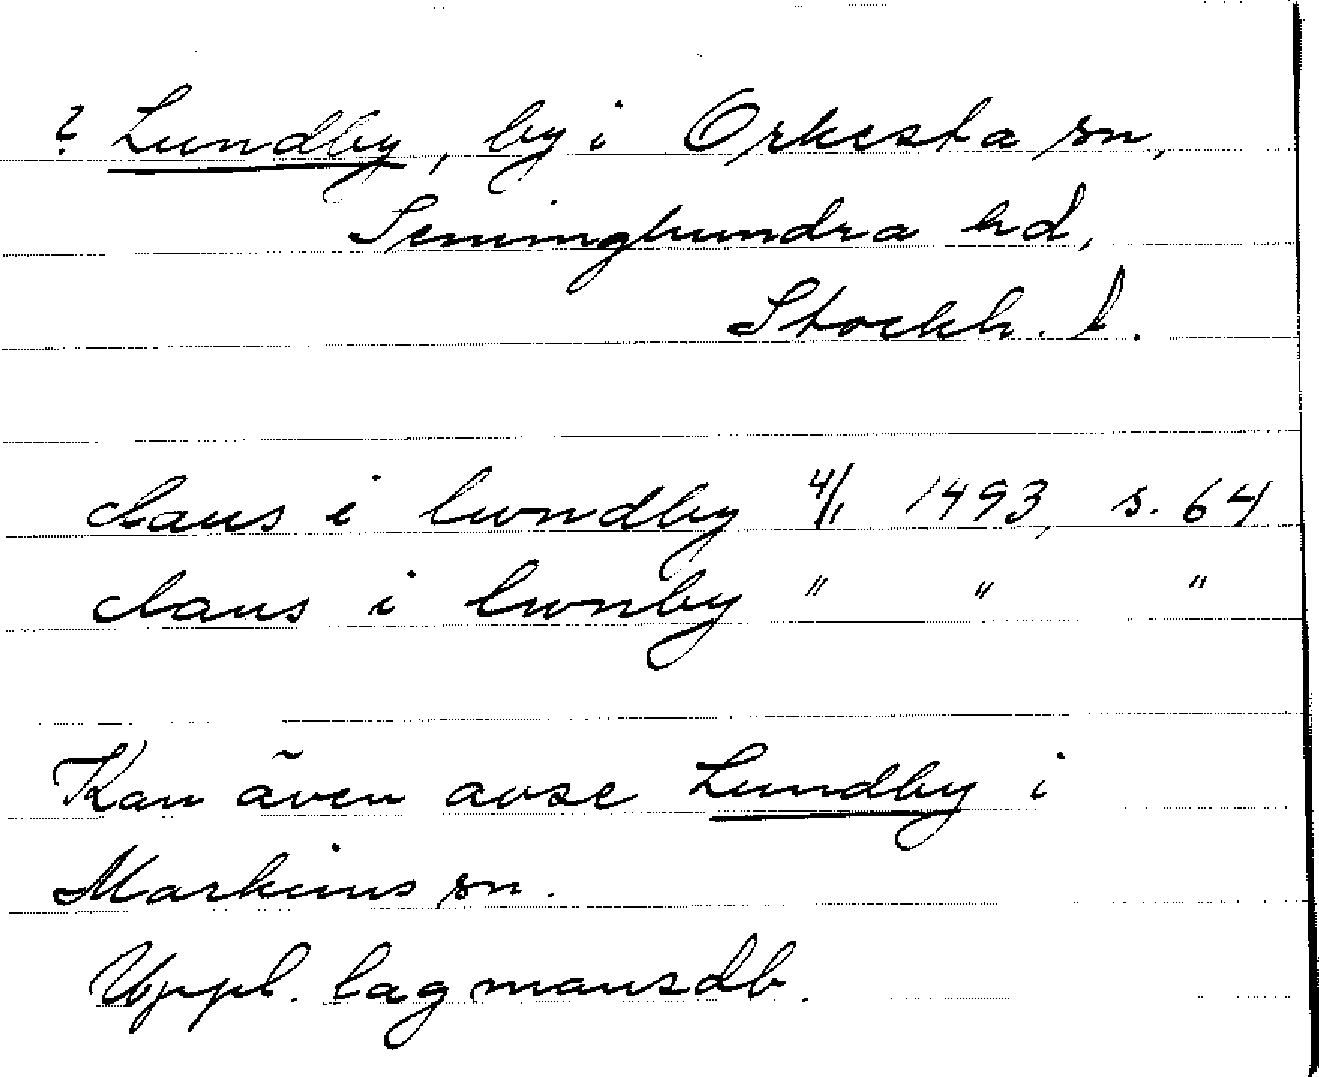 ? Lundby, by i Orkesta sn,
Seminghundra hd,
Stockh. l.
claus i lwndby 4/1 1493, s. 64
claus i lwnby " " "
Kan även avse Lundby i
Markims sn.
Uppl. lagmansdb.